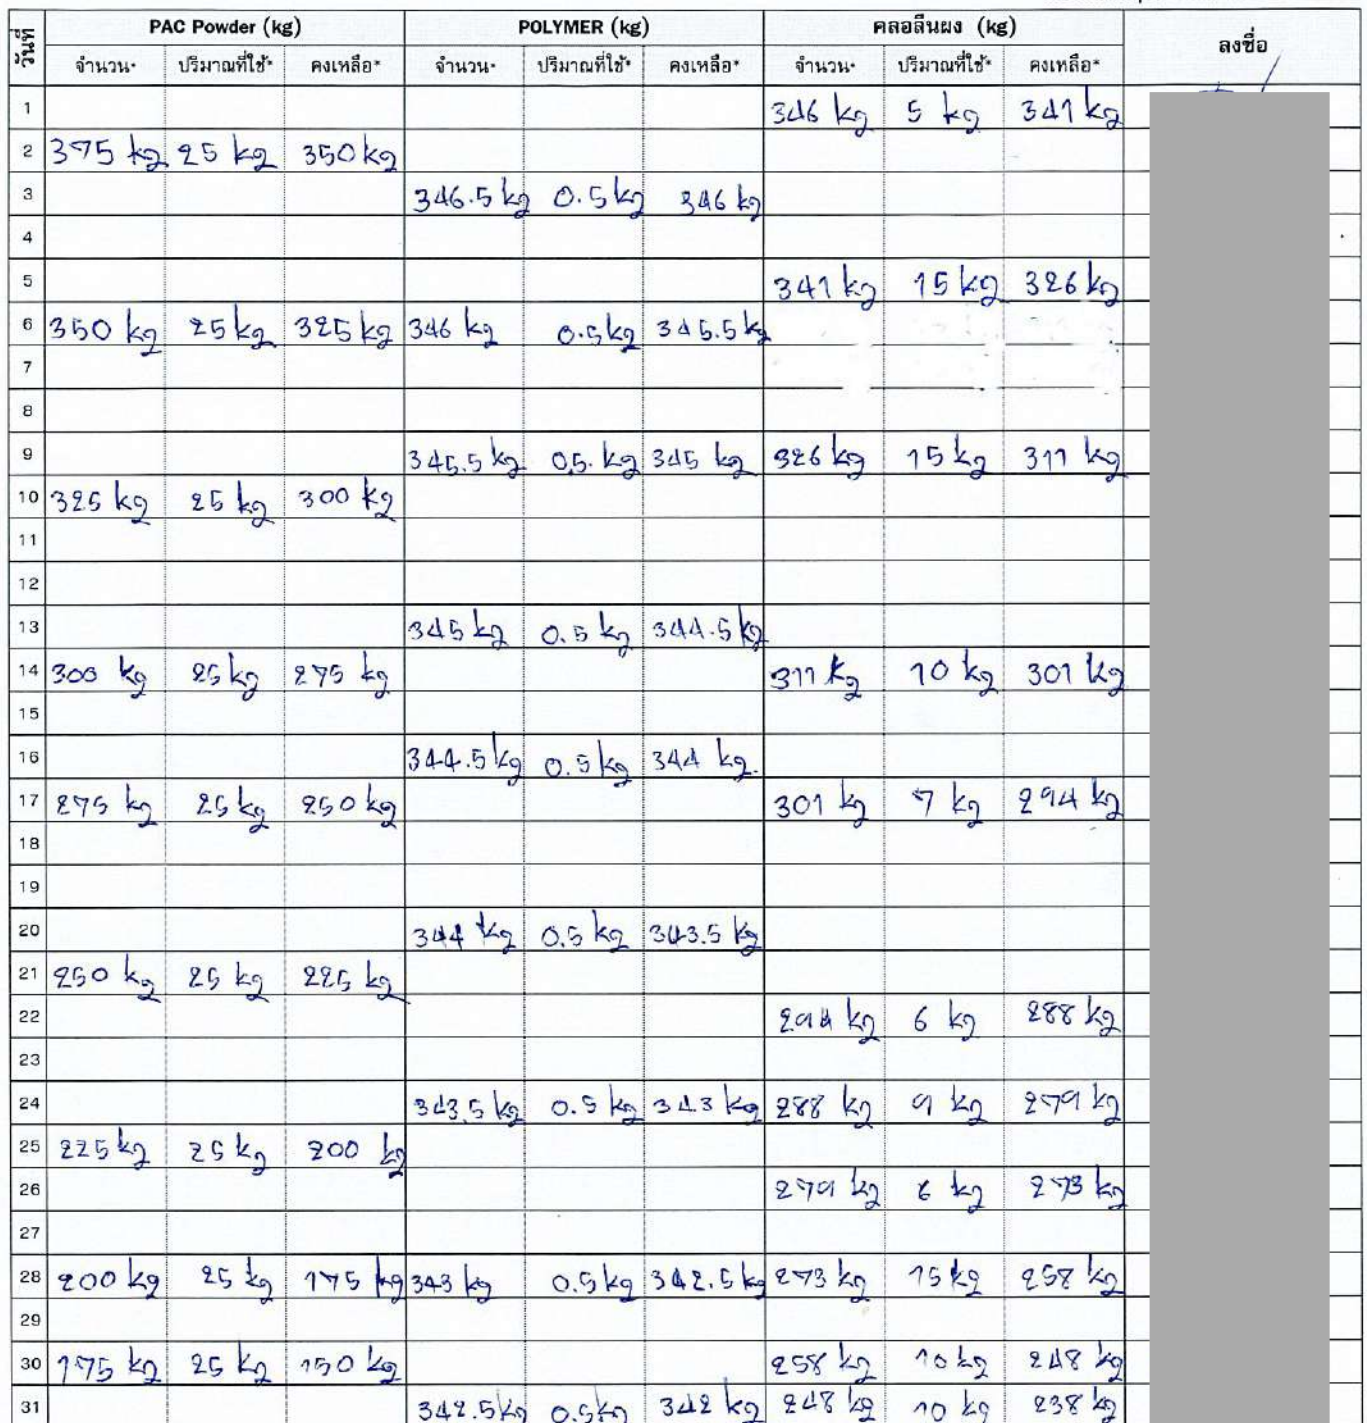 วันที่ PAC Powder (kg) POLYMER (kg) คลอลีนผง (kg) ลงชื่อ
จำนวน* ปริมาณที่ใช้* คงเหลือ* จำนวน* ปริมาณที่ใช้* คงเหลือ* จำนวน* ปริมาณที่ใช้* คงเหลือ*
1 346 kg 5 kg 341 kg
2 375 kg 25 kg 350 kg
3 346.5 kg 0.5 kg 346 kg
4
5 341 kg 15 kg 326 kg
6 350 kg 25 kg 325 kg 346 kg 0.5 kg 345.5 kg
7
8
9 345.5 kg 0.5 kg 345 kg 326 kg 15 kg 311 kg
10 325 kg 25 kg 300 kg
11
12
13 345 kg 0.5 kg 344.5 kg
14 300 kg 25 kg 275 kg 311 kg 10 kg 301 kg
15
16 344.5 kg 0.5 kg 344 kg.
17 275 kg 25 kg 250 kg 301 kg 7 kg 294 kg
18
19
20 344 kg 0.5 kg 343.5 kg
21 250 kg 25 kg 225 kg
22 294 kg 6 kg 288 kg
23
24 343.5 kg 0.5 kg 343 kg 288 kg 9 kg 279 kg
25 225 kg 25 kg 200 kg
26 279 kg 6 kg 273 kg
27
28 200 kg 25 kg 175 kg 343 kg 0.5 kg 342.5 kg 273 kg 15 kg 258 kg
29
30 175 kg 25 kg 150 kg 258 kg 10 kg 248 kg
31 342.5 kg 0.5 kg 342 kg 248 kg 10 kg 238 kg